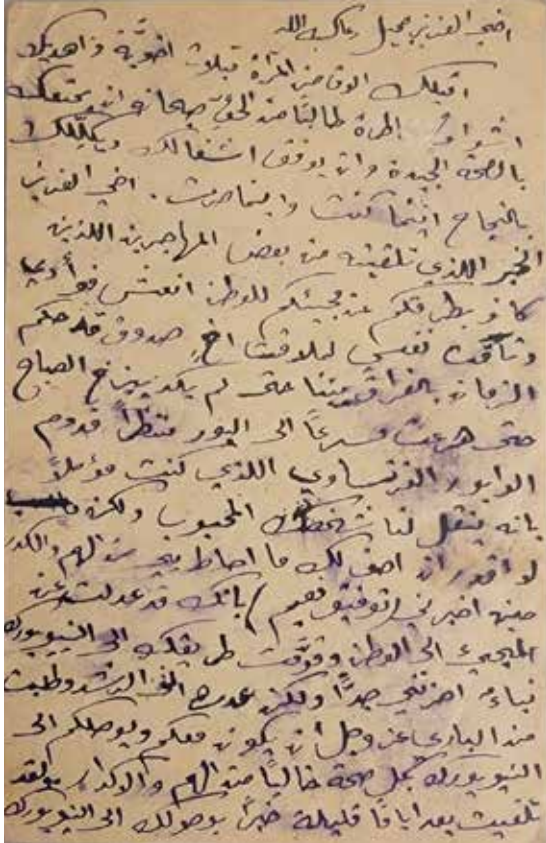 اخي العزيز جميل رعاك الله
اقبلك الوفاً من المرّات قبلات اخويّة واهديك
اشواقي الحارة طالباً من الحقّ سبحانه ان يمتعك
بالصحة الجيدة وان يوفق اشغالك ويكللك
بالنجاح اينما كنت واينما صرت . اخي العزيز
الخبر اللذي تلقيته من بعض المهاجرين اللذين
كانو بطرفكم عن مجيئكم للوطن انعش فوأدي
وتاقت نفسي لملاقات اخٍ صدوق قد حكم
الزمان بالفراق بيننا حتى لم يكد يبزغ الصباح
حتى هرعت مسرعاً الى البور منتظراً قدوم
الوابور الفرنساوي اللذي كنت مؤملاً
بانه ينقل لنا شخصك المحبوب ولكن
لو اقدر ان اصف لك ما احاط بي من الهم والكدر
حين اخبرني (توفيق نعيم) بانك قد عدلت عن
المجيئ الى الوطن وقوّمت طريقك الى النيويورك
نباءٌ احزنني جداً ولكن عدت الى الرشد وطلبت
من الباري عز وجل أن يكون معكم ويوصلكم الى
النيويورك بكل صحة خالياً من الهم والاكدار ولقد
تلقيت بعد اياماً قليلة خبراً بوصولك الى النيويورك